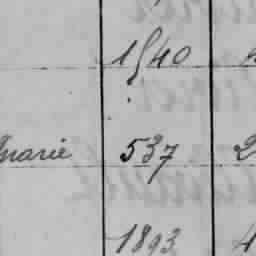 1540
marie 537 2
1893 4